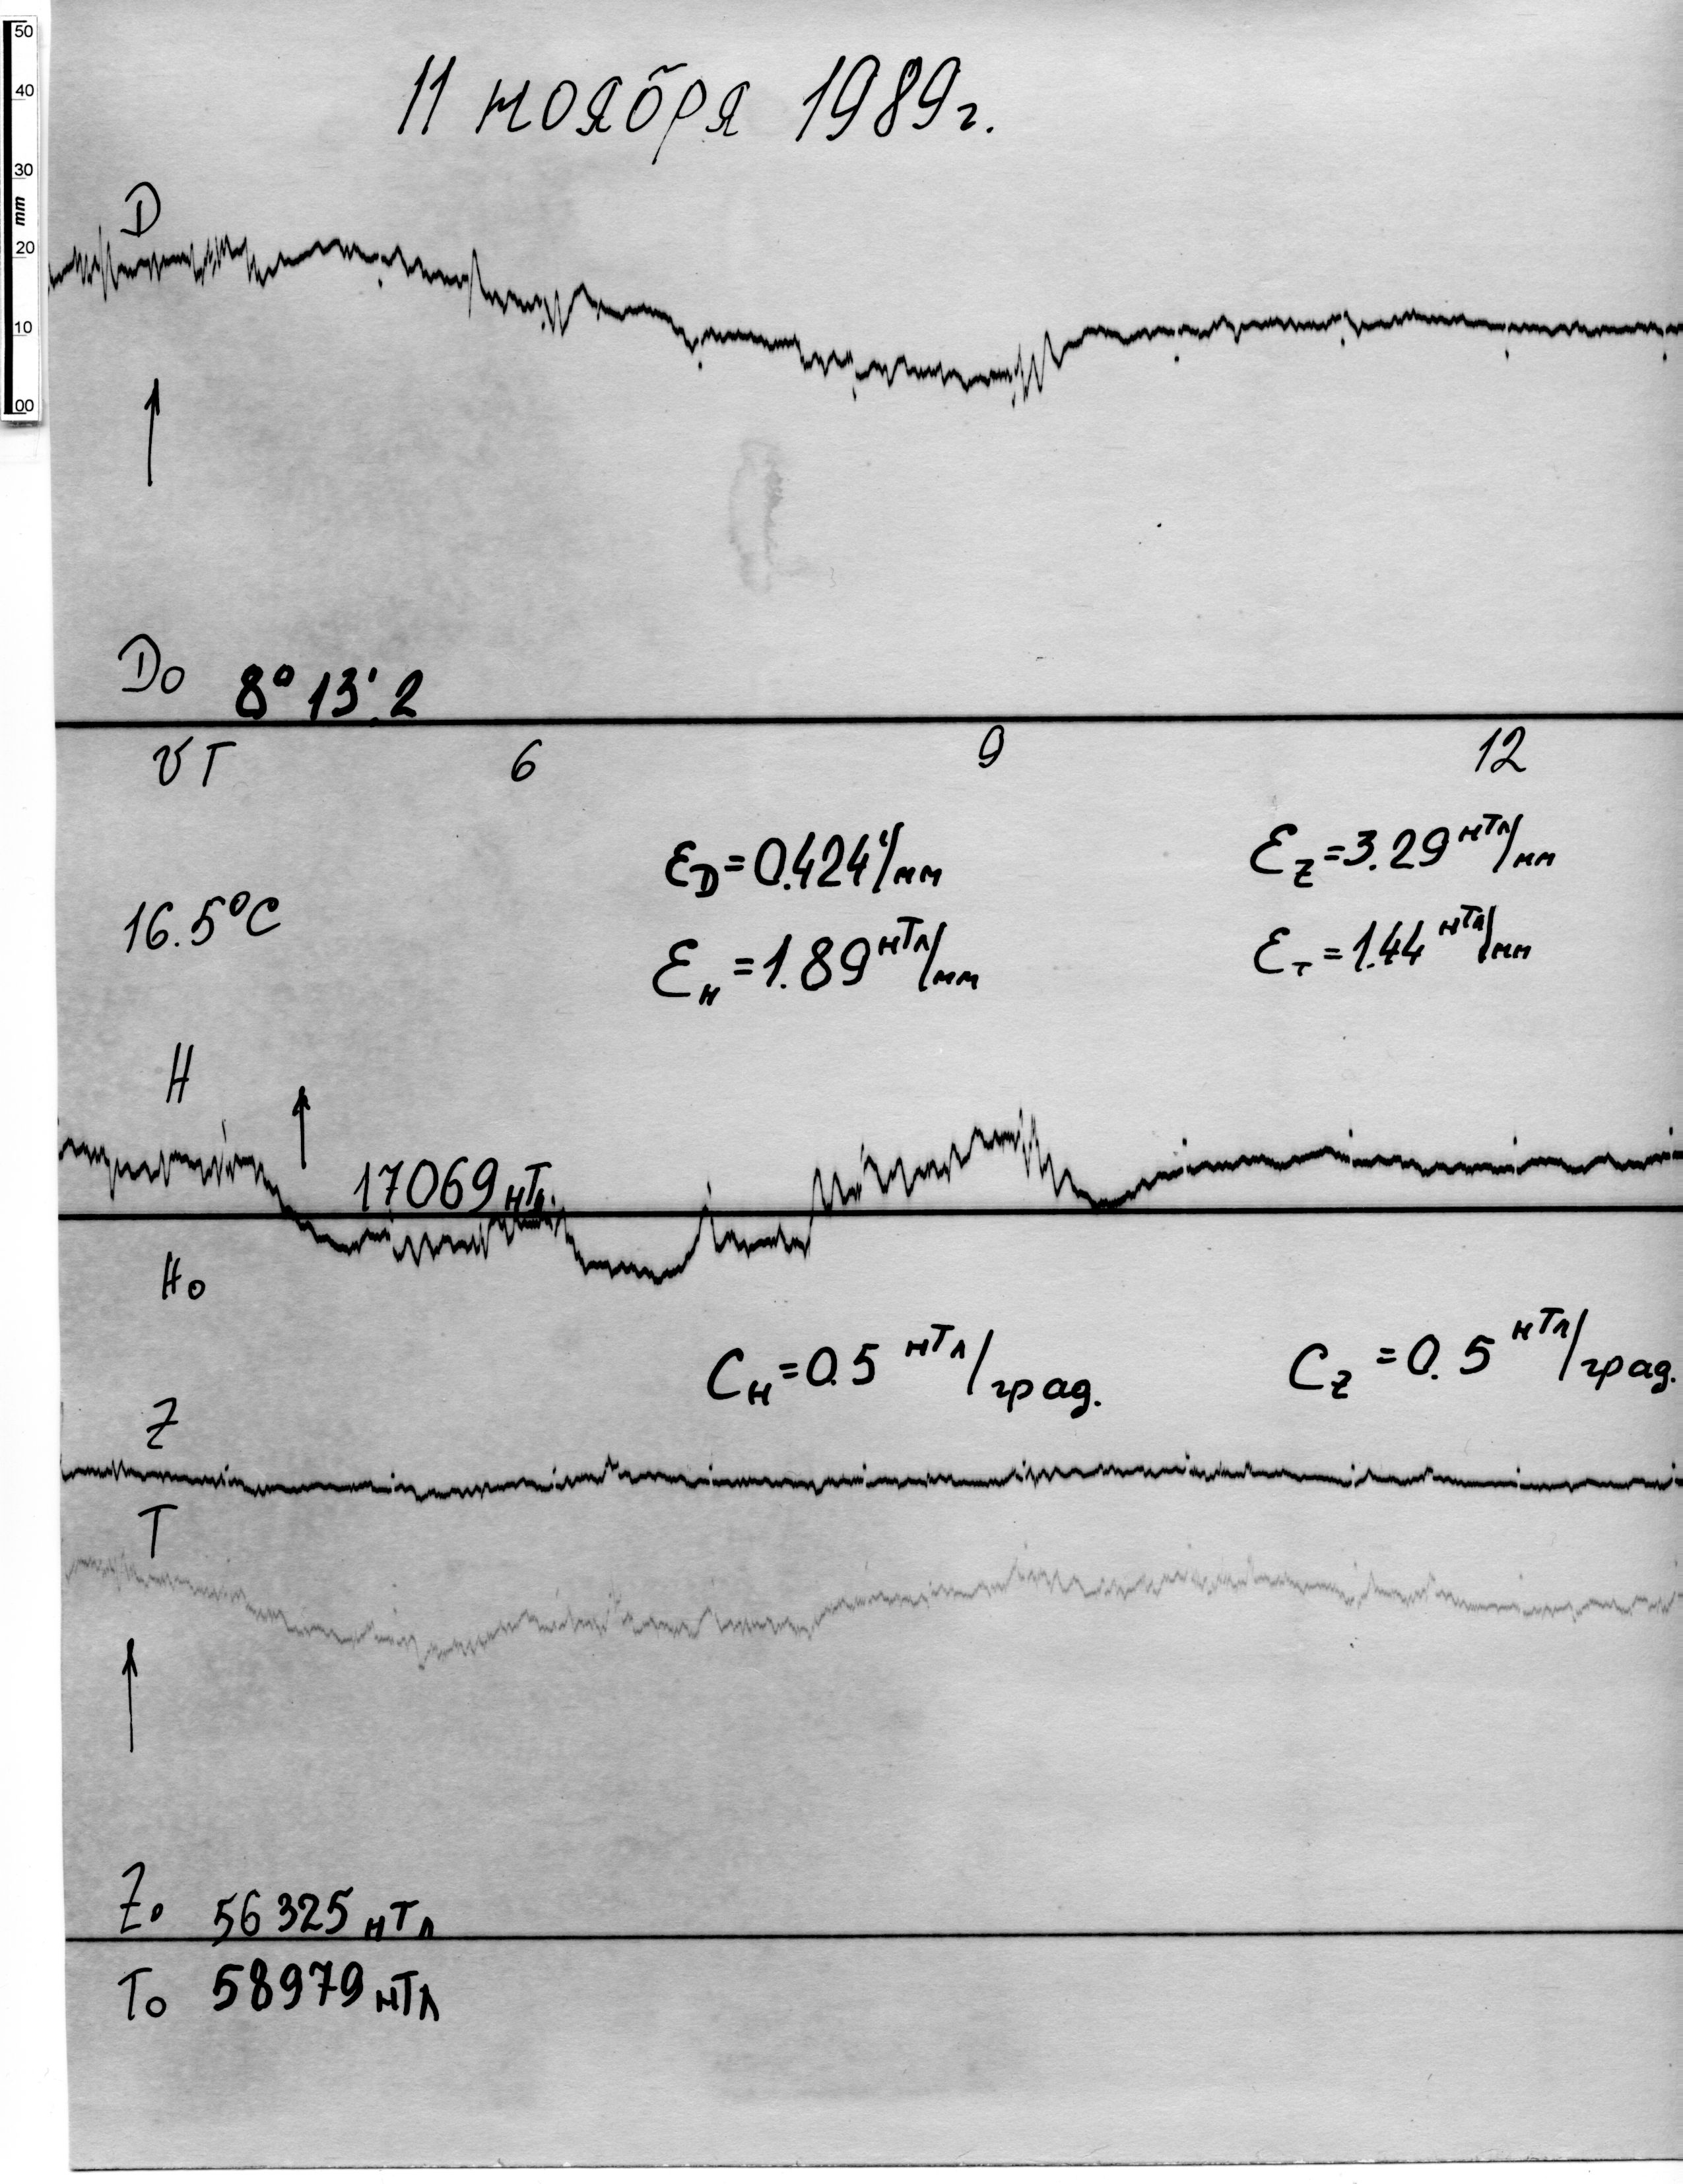 50
40
30
mm
20
10
00
11 ноября 1989г.
D
D₀ 8° 13'.2
UT 6 9 12
ε_D=0.424'/мм ε_Z=3.29 нТл/мм
16.5°C
ε_H=1.89 нТл/мм ε_T=1.44 нТл/мм
H
17069 нТл.
H₀
C_H=0.5 нТл/град. C_Z=0.5 нТл/град.
Z
T
Z₀ 56325 нТл
T₀ 58979 нТл